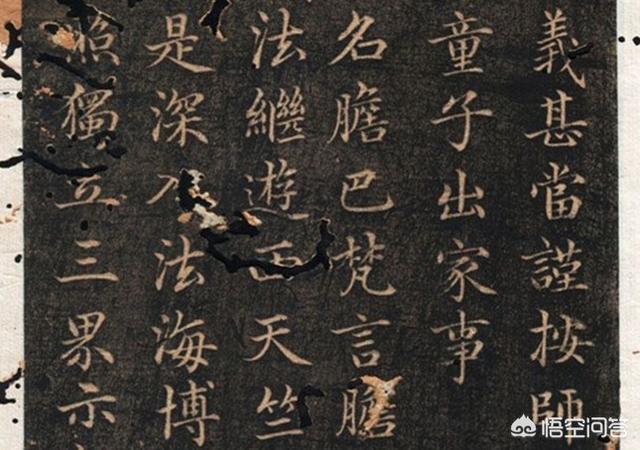 義甚當謹按師
童子出家事
名膽巴梵言膽
法繼遊西天竺
是深入法海博
照獨立三界示
悟空问答